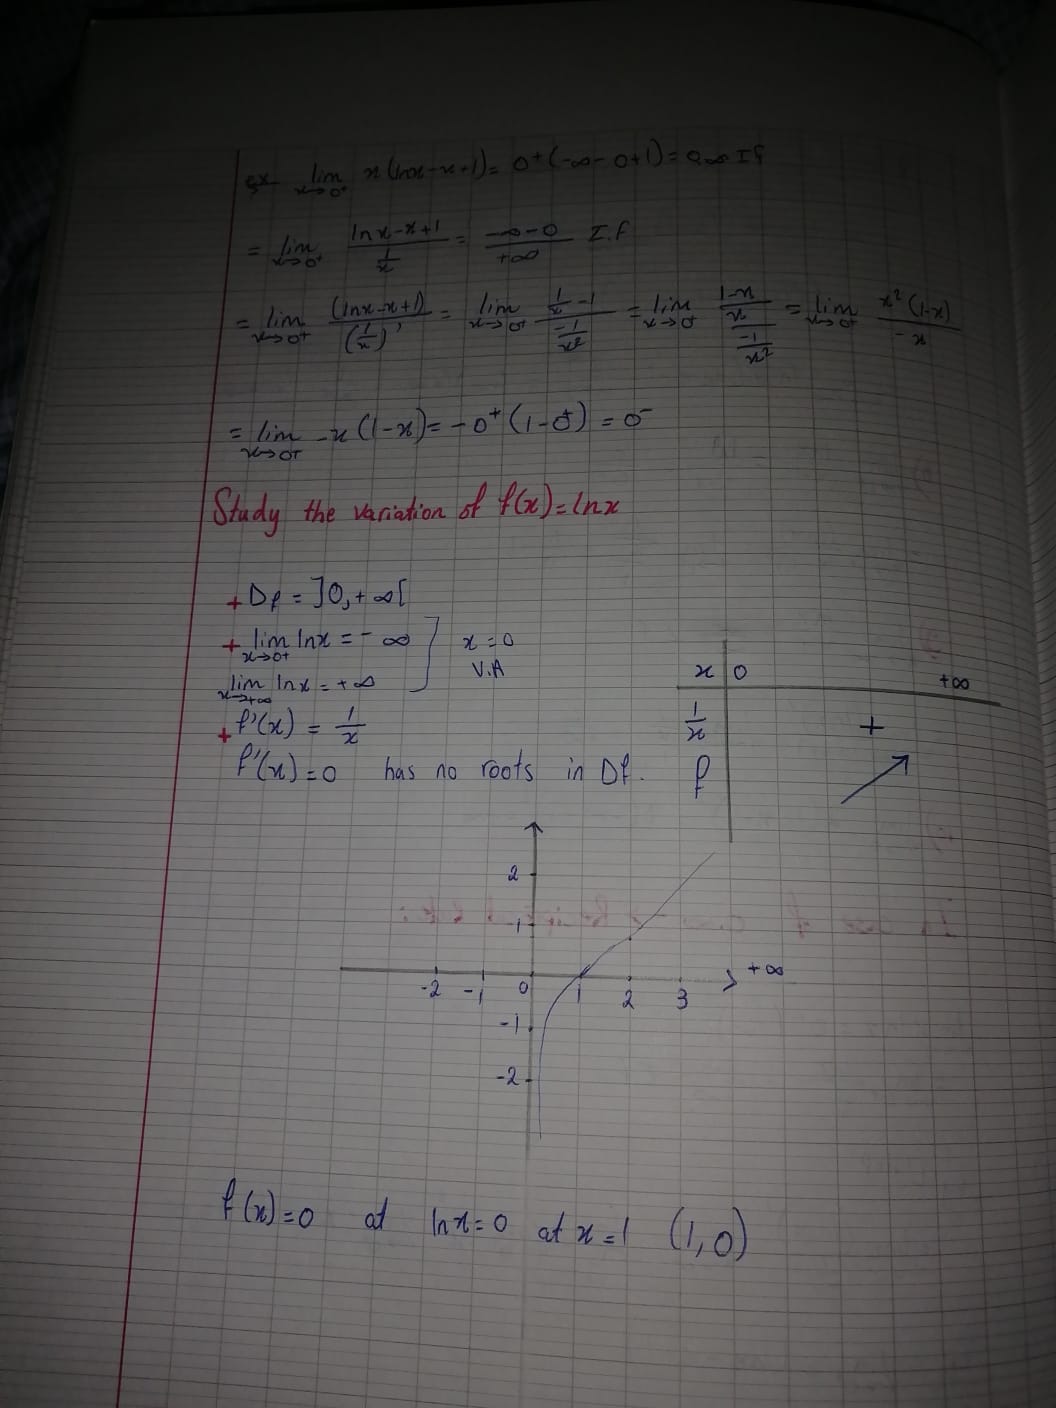 ex- lim x→0+ x(lnx-x+1) = 0+(-∞-0+1) = 0.∞ I.f
= lim x→0+ (lnx-x+1)/(1/x) = (-∞-0)/(+∞) I.f
= lim x→0+ (lnx-x+1)'/(1/x)' = lim x→0+ (1/x -1)/(-1/x²) = lim x→0 ((1-x)/x)/(-1/x²) = lim x→0+ x²(1-x)/-x
= lim x→0+ -x(1-x) = -0+(1-0+) = 0-
Study the variation of f(x)=lnx
+ Df = ]0,+∞[
+ lim x→0+ lnx = -∞
lim x→+∞ lnx = +∞
x=0
V.A
+ f'(x) = 1/x
f'(x)=0 has no roots in Df.
x 0 +∞
1/x +
f
2
1
-2 -1 0 1 2 3 +∞
-1
-2
f(x)=0 at lnx=0 at x=1 (1,0)